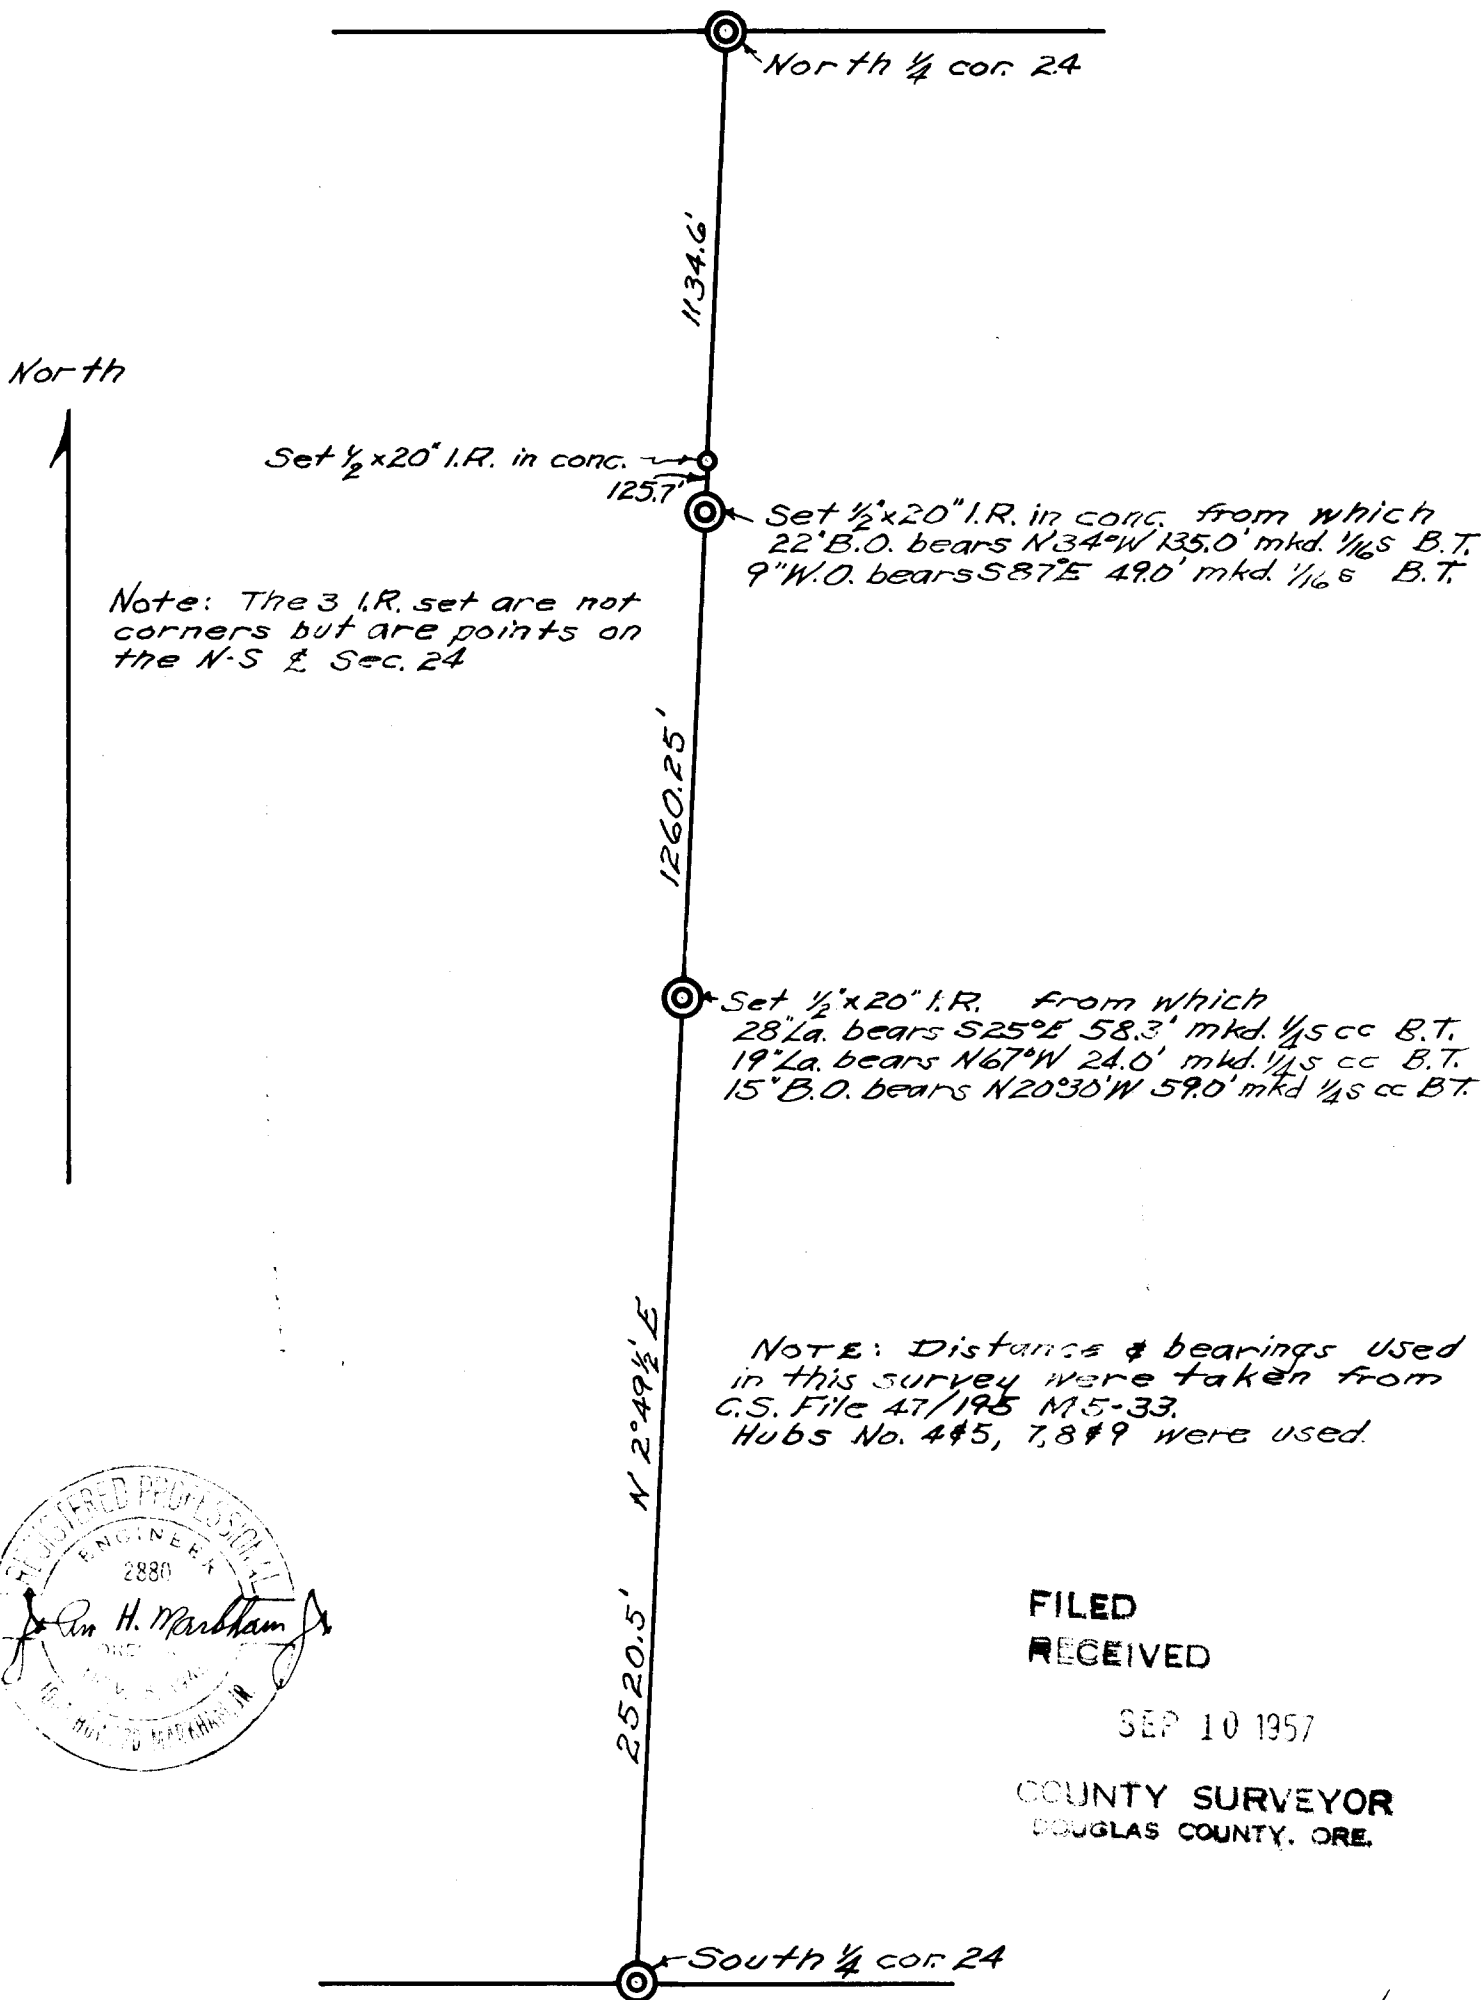 North ¼ cor. 24
1134.6'
North
Set ½ x20" I.R. in conc.
125.7'
Set ½"x20" I.R. in conc. from which
22"B.O. bears N34°W 135.0' mkd. 1/16 S B.T.
9"W.O. bears S87°E 49.0' mkd. 1/16 S B.T.
Note: The 3 I.R. set are not
corners but are points on
the N-S ℄ Sec. 24
1260.25'
Set ½"x20" I.R. from which
28"La. bears S25°E 58.3' mkd. ¼ S cc B.T.
19"La. bears N67°W 24.0' mkd. ¼ S cc B.T.
15"B.O. bears N20°30'W 59.0' mkd ¼ S cc BT.
N 2°49½' E
NOTE: Distance & bearings used
in this survey were taken from
C.S. File 47/195 M5-33.
Hubs No. 4&5, 7,8&9 were used.
REGISTERED PROFESSIONAL
ENGINEER
2880
H. Markham Jr
MARKHAM JR
2520.5'
FILED
RECEIVED
SEP 10 1957
COUNTY SURVEYOR
DOUGLAS COUNTY. ORE.
South ¼ cor. 24